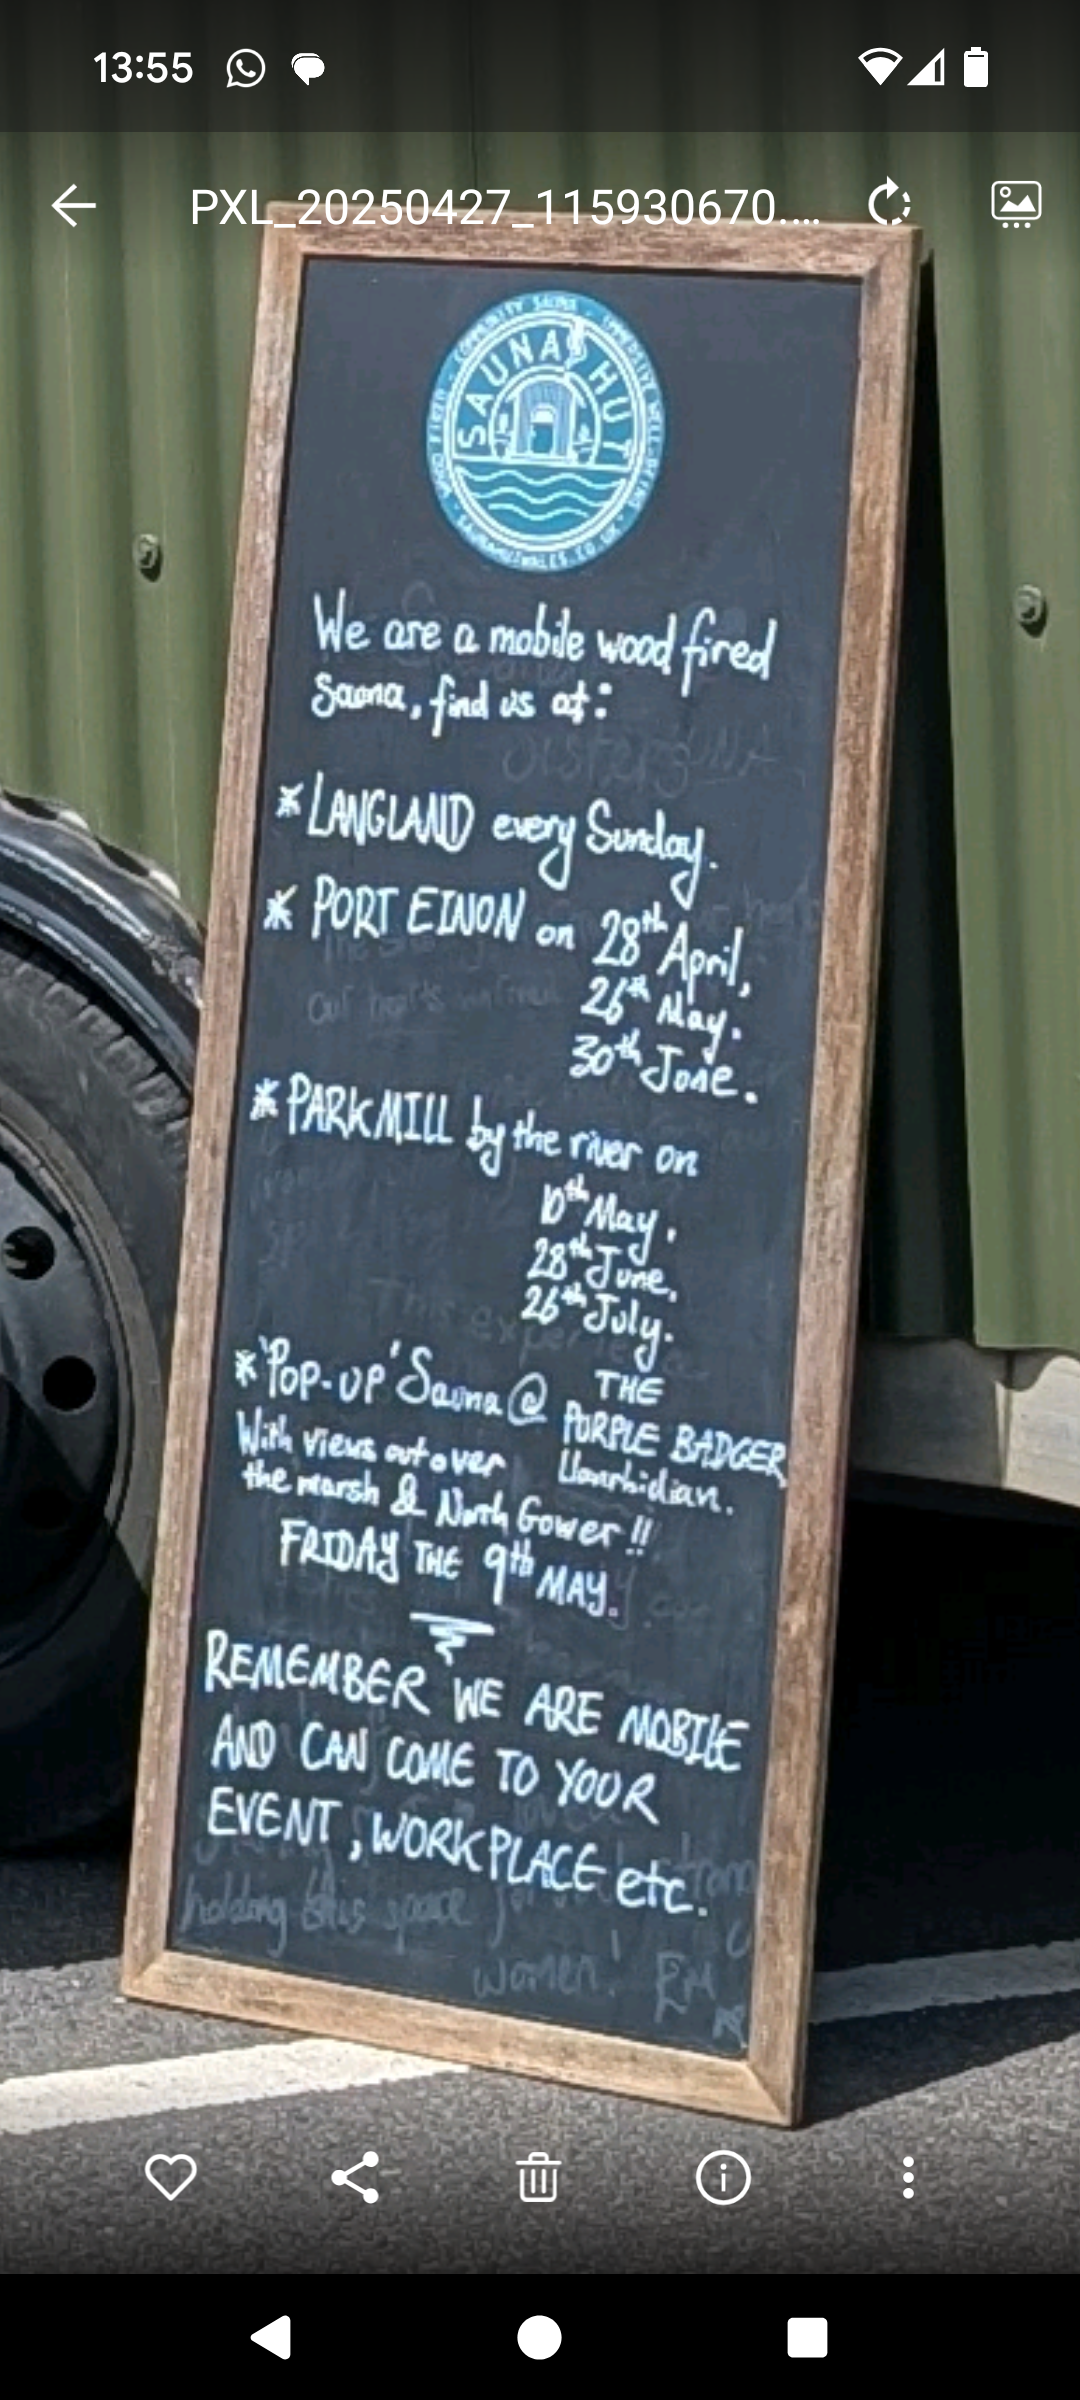 13:55
PXL_20250427_115930670....
WOOD FIRED · COMMUNITY SAUNA · IMMERSIVE WELL-BEING · SAUNAHUTWALES.CO.UK
SAUNA HUT
We are a mobile wood fired
Sauna, find us at:
* LANGLAND every Sunday.
* PORT EINON on 28th April,
26th May.
30th June.
* PARKMILL by the river on
10th May,
28th June,
26th July.
* 'POP-UP' Sauna @ THE
PURPLE BADGER
Llanrhidian.
With views out over
the marsh & North Gower!!
FRIDAY THE 9th MAY.
REMEMBER WE ARE MOBILE
AND CAN COME TO YOUR
EVENT, WORKPLACE etc.
holding this space
women!